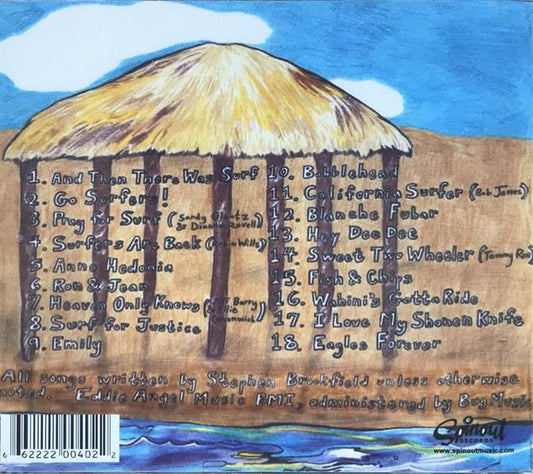 1. And Then There Was Surf
2. Go Surfers!
3. Pray for Surf (Sandy Glantz
& Dianne Rovell)
4. Surfers Are Back (Robin Wills)
5. Anne Hedonia
6. Ron & Joan
7. Heaven Only Knows (Jeff Barry
& Ellie Greenwich)
8. Surf for Justice
9. Emily
10. Bobblehead
11. California Surfer (Bob James)
12. Blanche Fubar
13. Hey Dee Dee
14. Sweet Two Wheeler (Tommy Roe)
15. Fish & Chips
16. Wahini's Gotta Ride
17. I Love My Shonen Knife
18. Eagles Forever
All songs written by Stephen Brookfield unless otherwise
noted. Eddie Angel Music BMI, administered by Bug Music
6 62222 00402 2
Spinout
RECORDS
www.spinoutmusic.com